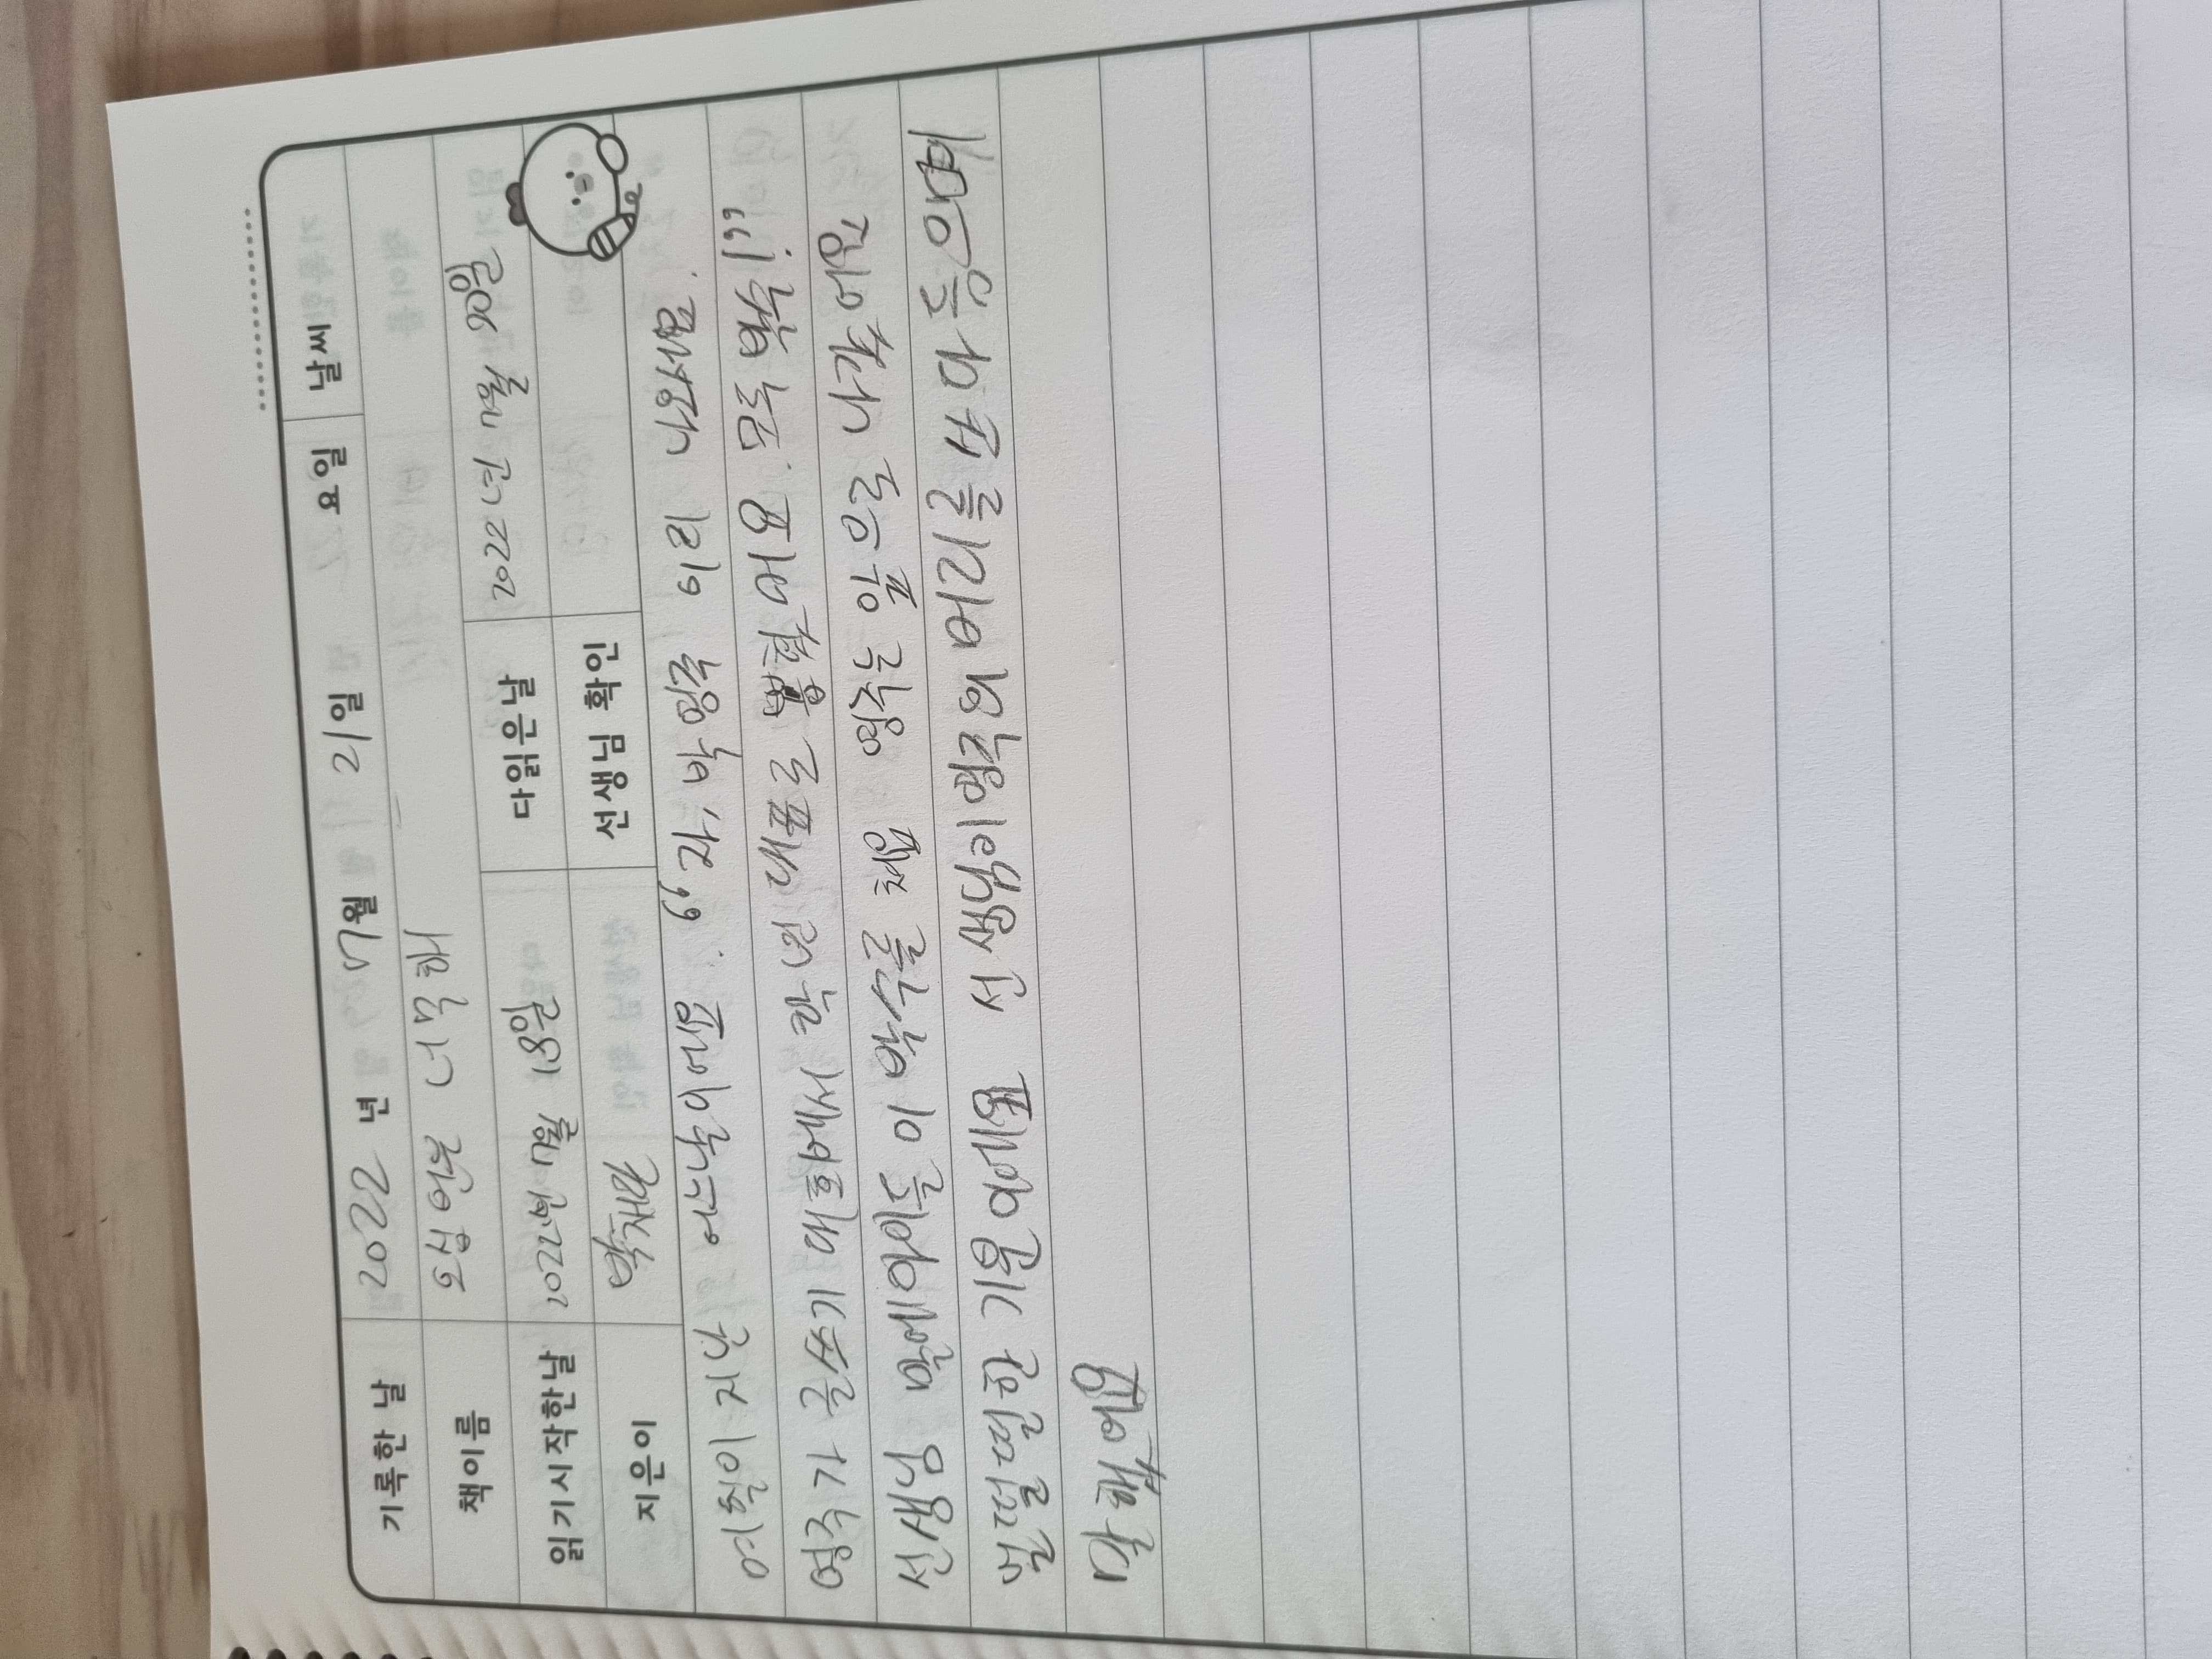 기록한 날 2022 년 7월 21일 요일 날씨
책이름 오십 언은 너무해
읽기시작한날 2022년 7월 18일 다읽은날 2022년 7월 20일
지은이 박채란 선생님 확인
여칠이 지난 어느날이에요. “자, 박영주 이리 나와세요.
영주가 글쓰기 대회에서 학년 대표로 뽑혔어요. 모두 박수!”
선생님 말에 아이들이 박수를 쳐요 영주는 앞으로 나갔어요
얼떨떨한 기운이에요 선생님이 영주의 머리를 쓰다듬으며
말했어요